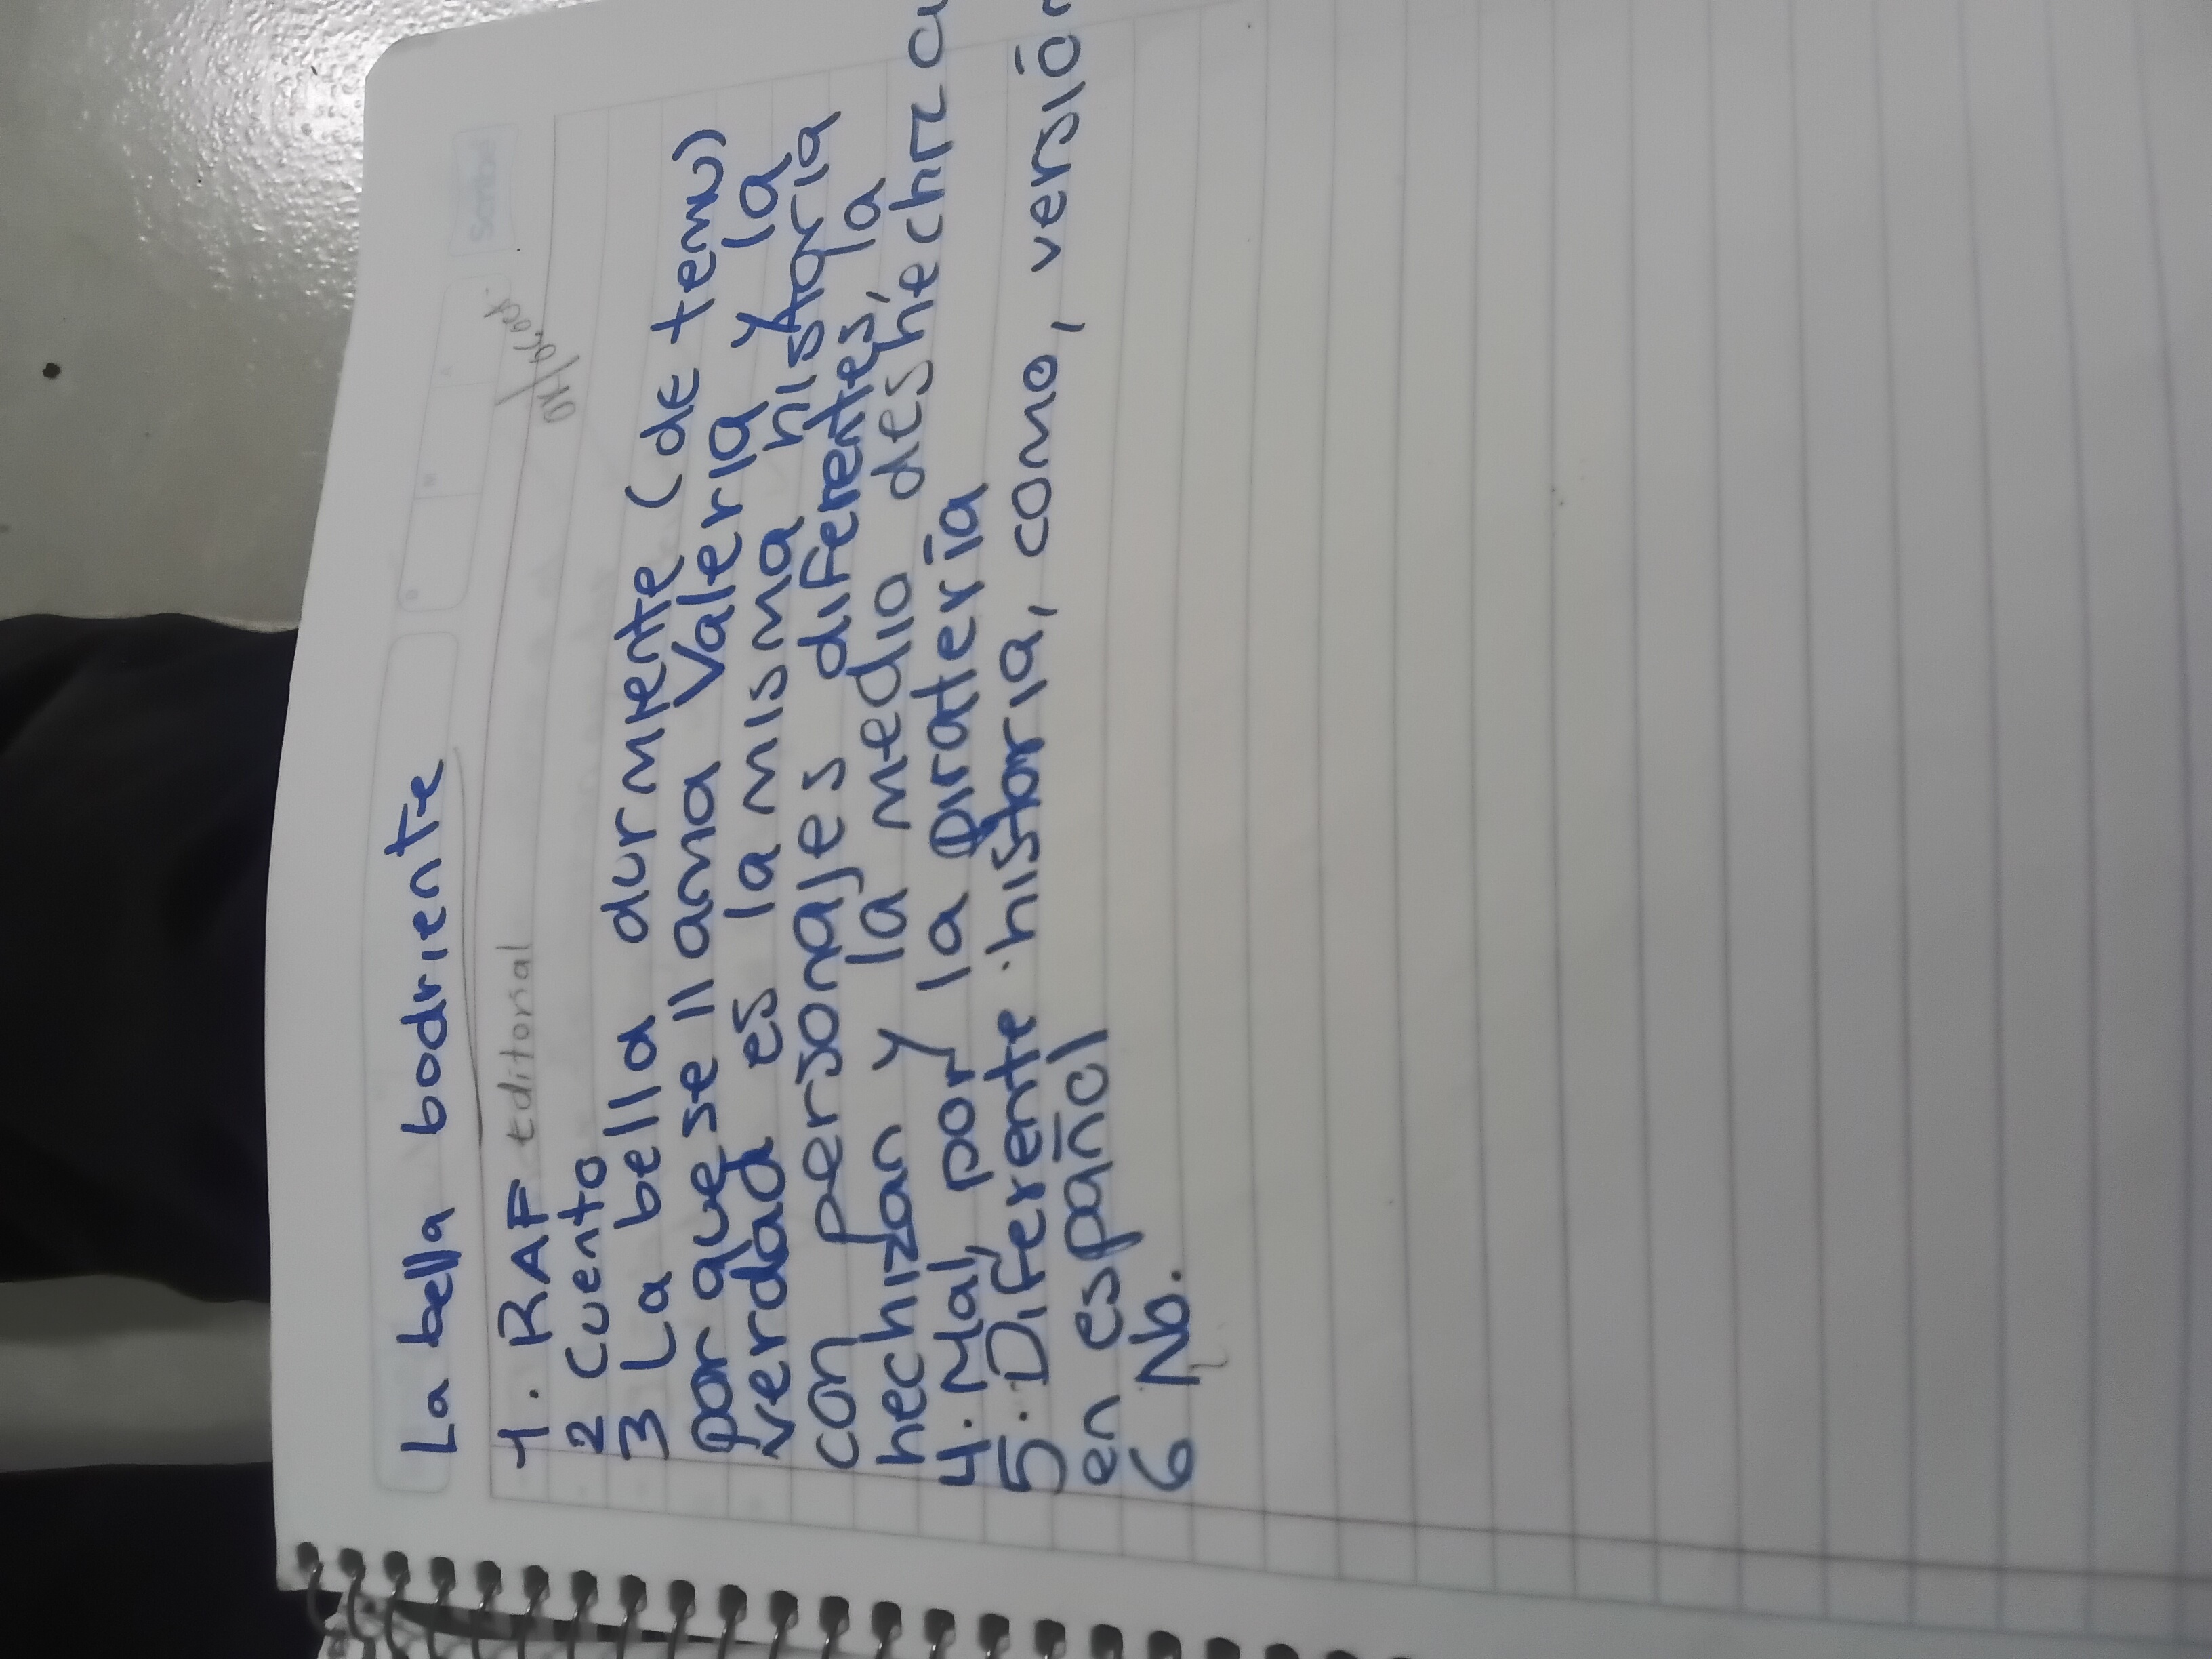 La bella bodriente
1. RAF Editorial
2 Cuento
3 La bella durmiente (de temu)
por que se llama Valeria y la
verdad es la misma historia
con personajes diferentes, la
hechizan y la medio deshechiza
4. Mal, por la piratería
5. Diferente historia, como, versión
en español
6 No.